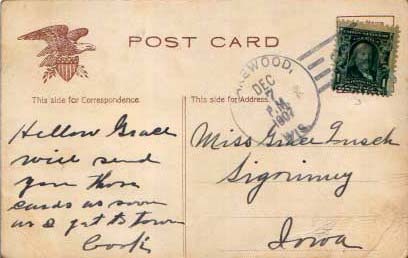 POST CARD
This side for Correspondence.
This side for Address.
EWOOD,
DEC
7
P.M.
1907
WIS.
Hellow Grace
will send
you those
cards as soon
as I get to town
Miss Grace
Sigourney
Iowa